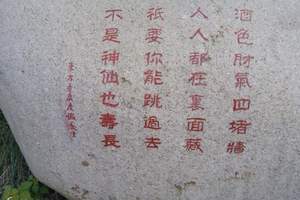 酒色財氣四堵牆
人人都在裏面藏
祇要你能跳過去
不是神仙也壽長